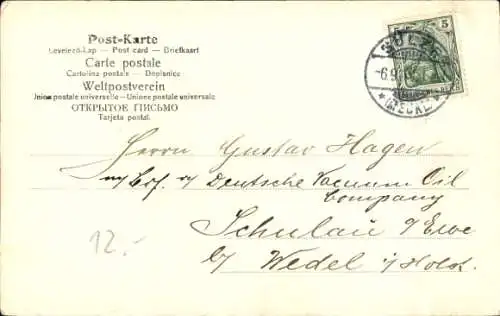 Post-Karte
Levelező-Lap — Post card — Briefkaart
Carte postale
Cartolina postale — Dopisnice
Weltpostverein
Union postale universelle - Unione postale universale
ОТКРЫТОЕ ПИСЬМО
Tarjeta postal.
5
SÜLZE
-6.9.
* (MECKL) *
Herrn Gustav Hagen
Deutsche Vacuum Oil
Company
Schulau a/Elbe
b/ Wedel i/Holst.
12.-